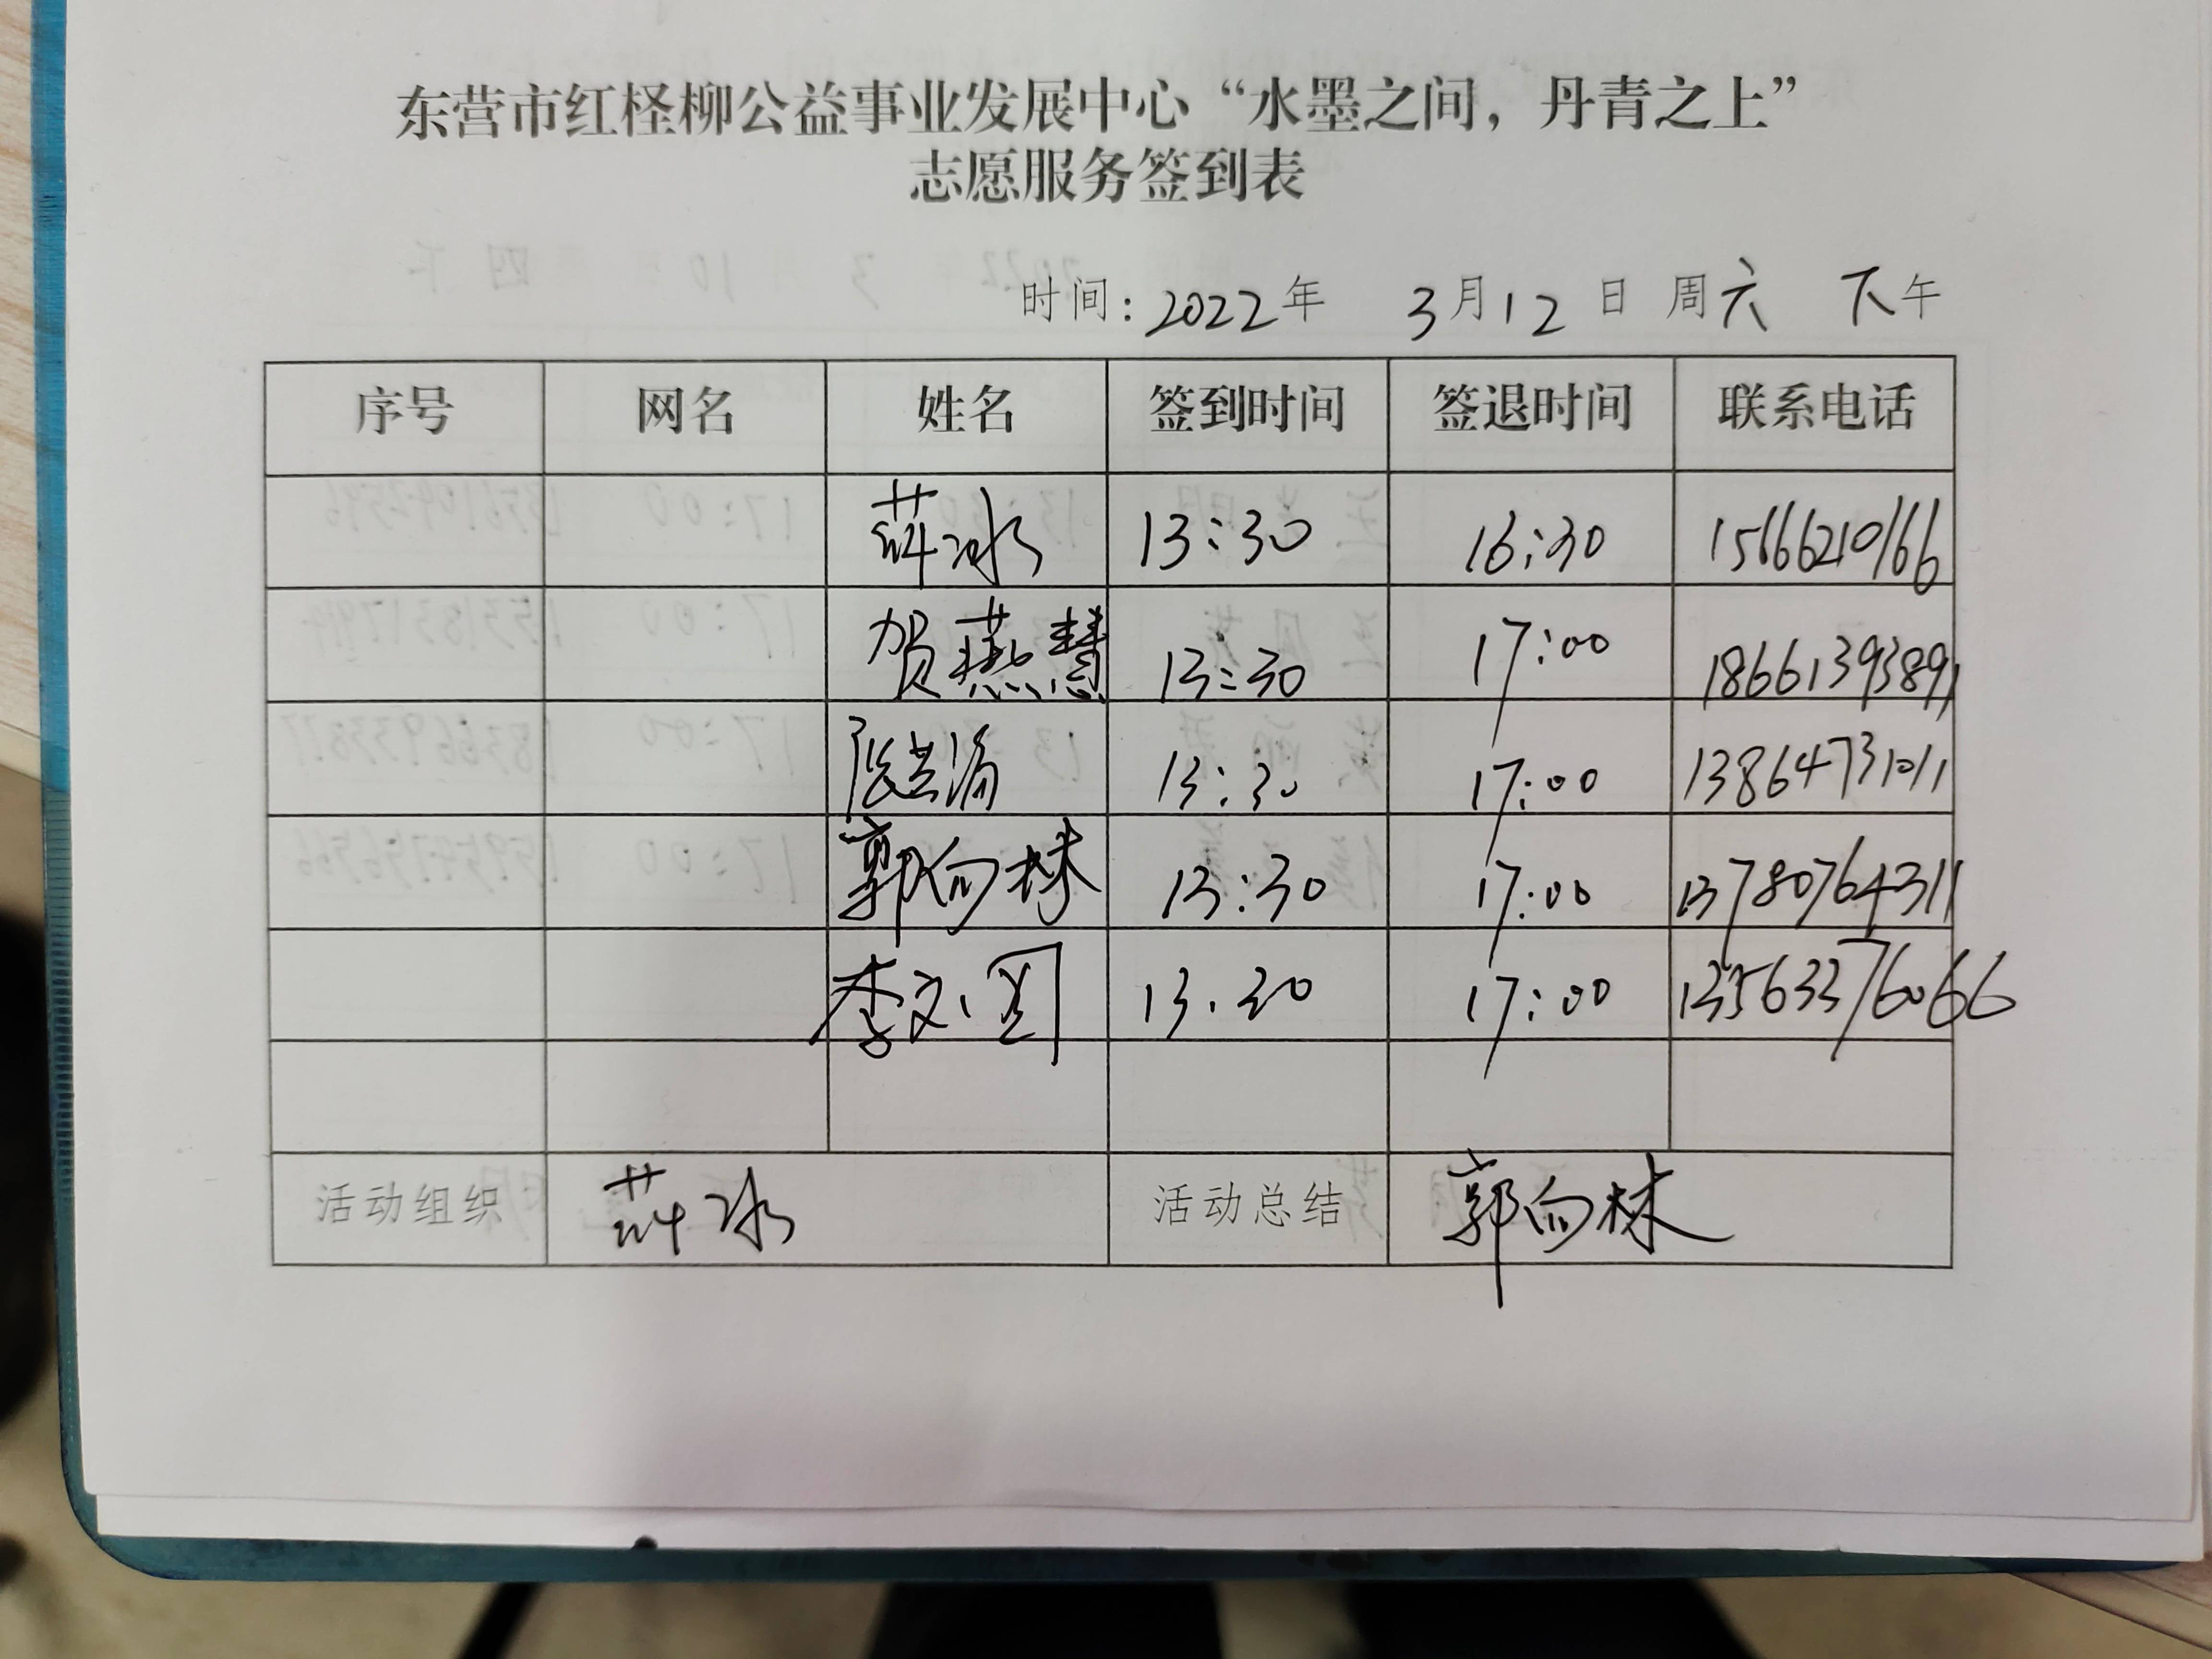 东营市红柽柳公益事业发展中心“水墨之间，丹青之上”
志愿服务签到表
时间：2022年 3月12日 周六 下午
序号 网名 姓名 签到时间 签退时间 联系电话
薛冰 13:30 16:30 15166210166
贺燕慧 13:30 17:00 18661393891
13:30 17:00 13864731011
郭向林 13:30 17:00 13780764311
李文 13.30 17:00 13563376066
活动组织 薛冰 活动总结 郭向林